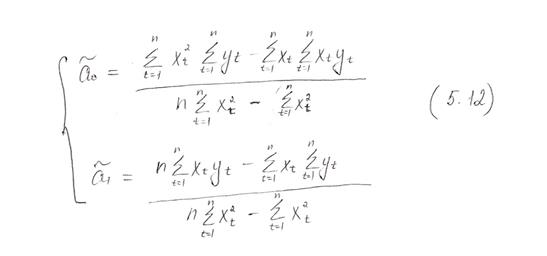 \tilde{a}_0 = \frac{\sum_{t=1}^{n} x_t^2 \sum_{t=1}^{n} y_t - \sum_{t=1}^{n} x_t \sum_{t=1}^{n} x_t y_t}{n \sum_{t=1}^{n} x_t^2 - \sum_{t=1}^{n} x_t^2}
(5.12)
\tilde{a}_1 = \frac{n \sum_{t=1}^{n} x_t y_t - \sum_{t=1}^{n} x_t \sum_{t=1}^{n} y_t}{n \sum_{t=1}^{n} x_t^2 - \sum_{t=1}^{n} x_t^2}